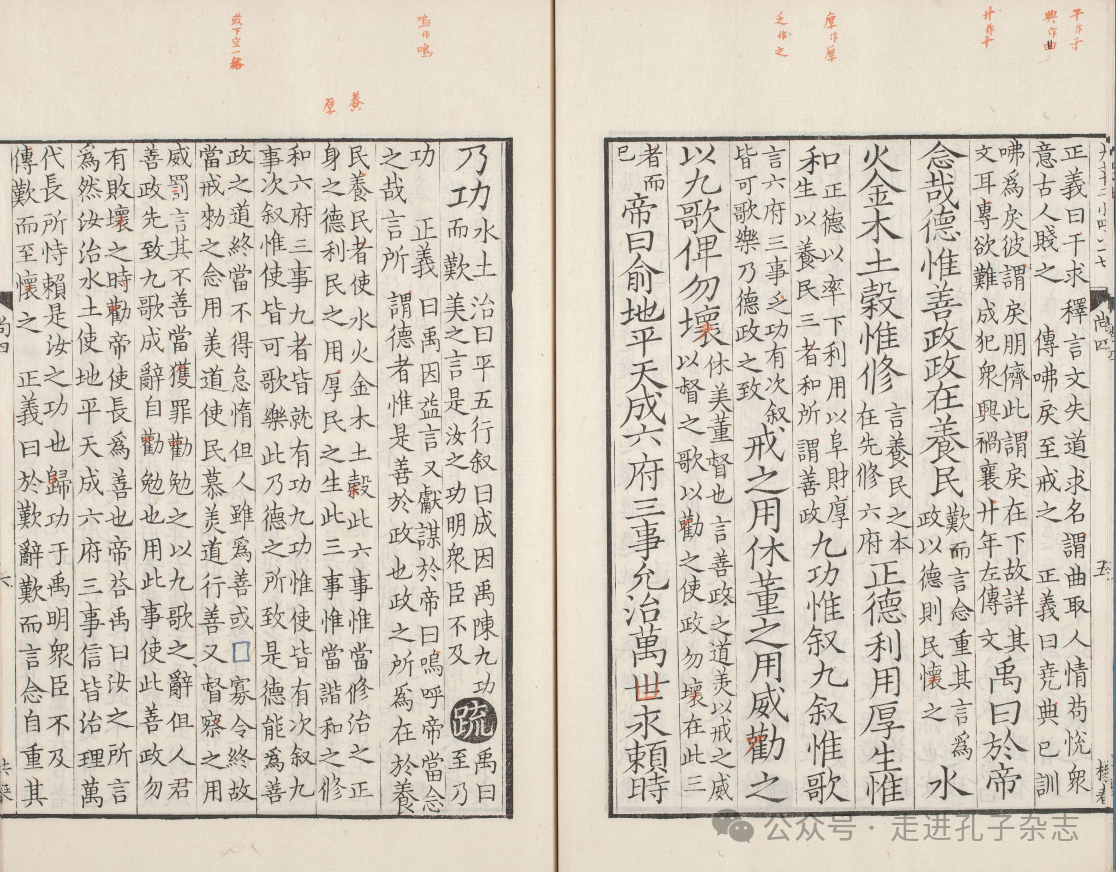 干作于
典作曲
乏作之
正義曰干求釋言文失道求名謂曲取人情苟悅衆
意古人賤之　傳咈戾至戒之　正義曰堯典已訓
咈爲戾彼謂戾朋儕此謂戾在下故詳其
文耳專欲難成犯衆興禍襄廿年左傳文
禹曰於帝
念哉德惟善政政在養民
歎而言念重其言爲
政以德則民懷之
水
火金木土穀惟修
言養民之本
在先修六府
正德利用厚生惟
和
正德以率下利用以阜財厚
生以養民三者和所謂善政
九功惟叙九叙惟歌
言六府三事之功有次叙
皆可歌樂乃德政之致
戒之用休董之用威勸之
以九歌俾勿壞
休美董督也言善政之道美以戒之威
以督之歌以勸之使政勿壞在此三
者而
已
帝曰俞地平天成六府三事允治萬世永賴時
尚四
五
嗚作嗚
養
厚
或下空一格
乃功
水土治曰平五行叙曰成因禹陳九功
而歎美之言是汝之功明衆臣不及
疏
禹曰
至乃
功　正義曰禹因益言又獻謀於帝曰嗚呼帝當念
之哉言所謂德者惟是善於政也政之所爲在於養
民養民者使水火金木土穀此六事惟當修治之正
身之德利民之用厚民之生此三事惟當諧和之修
和六府三事九者皆就有功九功惟使皆有次叙九
事次叙惟使皆可歌樂此乃德之所致是德能爲善
政之道終當不得怠惰但人雖爲善或□寡令終故
當戒勑之念用美道使民慕美道行善又督察之用
威罰言其不善當獲罪勸勉之以九歌之辭但人君
善政先致九歌成辭自勸勉也用此事使此善政勿
有敗壞之時勸帝使長爲善也帝荅禹曰汝之所言
爲然汝治水土使地平天成六府三事信皆治理萬
代長所恃賴是汝之功也歸功于禹明衆臣不及
傳歎而至懷之　正義曰於歎辭歎而言念自重其
尚四
六
公众号·走进孔子杂志